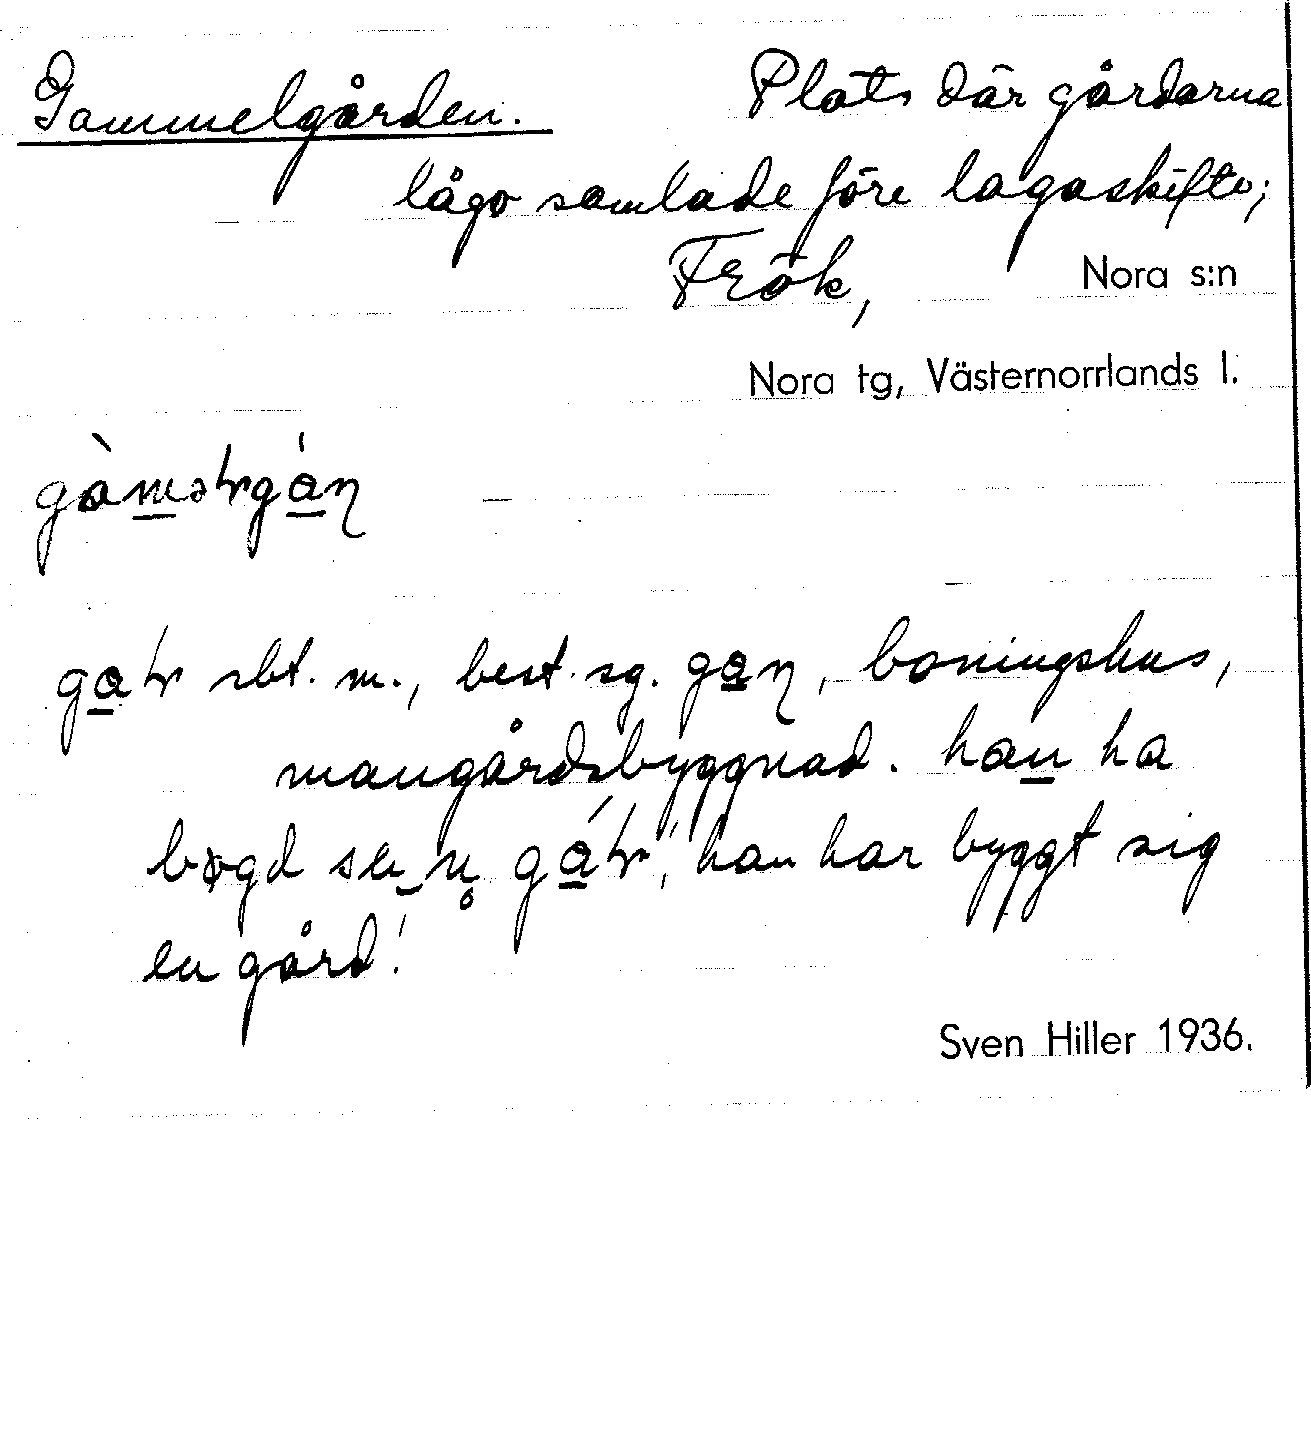 Gammelgården. Plats där gårdarna
lågo samlade före lagaskifte;
Frök, Nora s:n
Nora tg, Västernorrlands l.
gàməɽgáɳ
gaɽ sbt. m., best. sg. gaɳ, boningshus,
mangårdsbyggnad. han ha
bygd se n̥ gáɽ, 'han har byggt sig
en gård'.
Sven Hiller 1936.